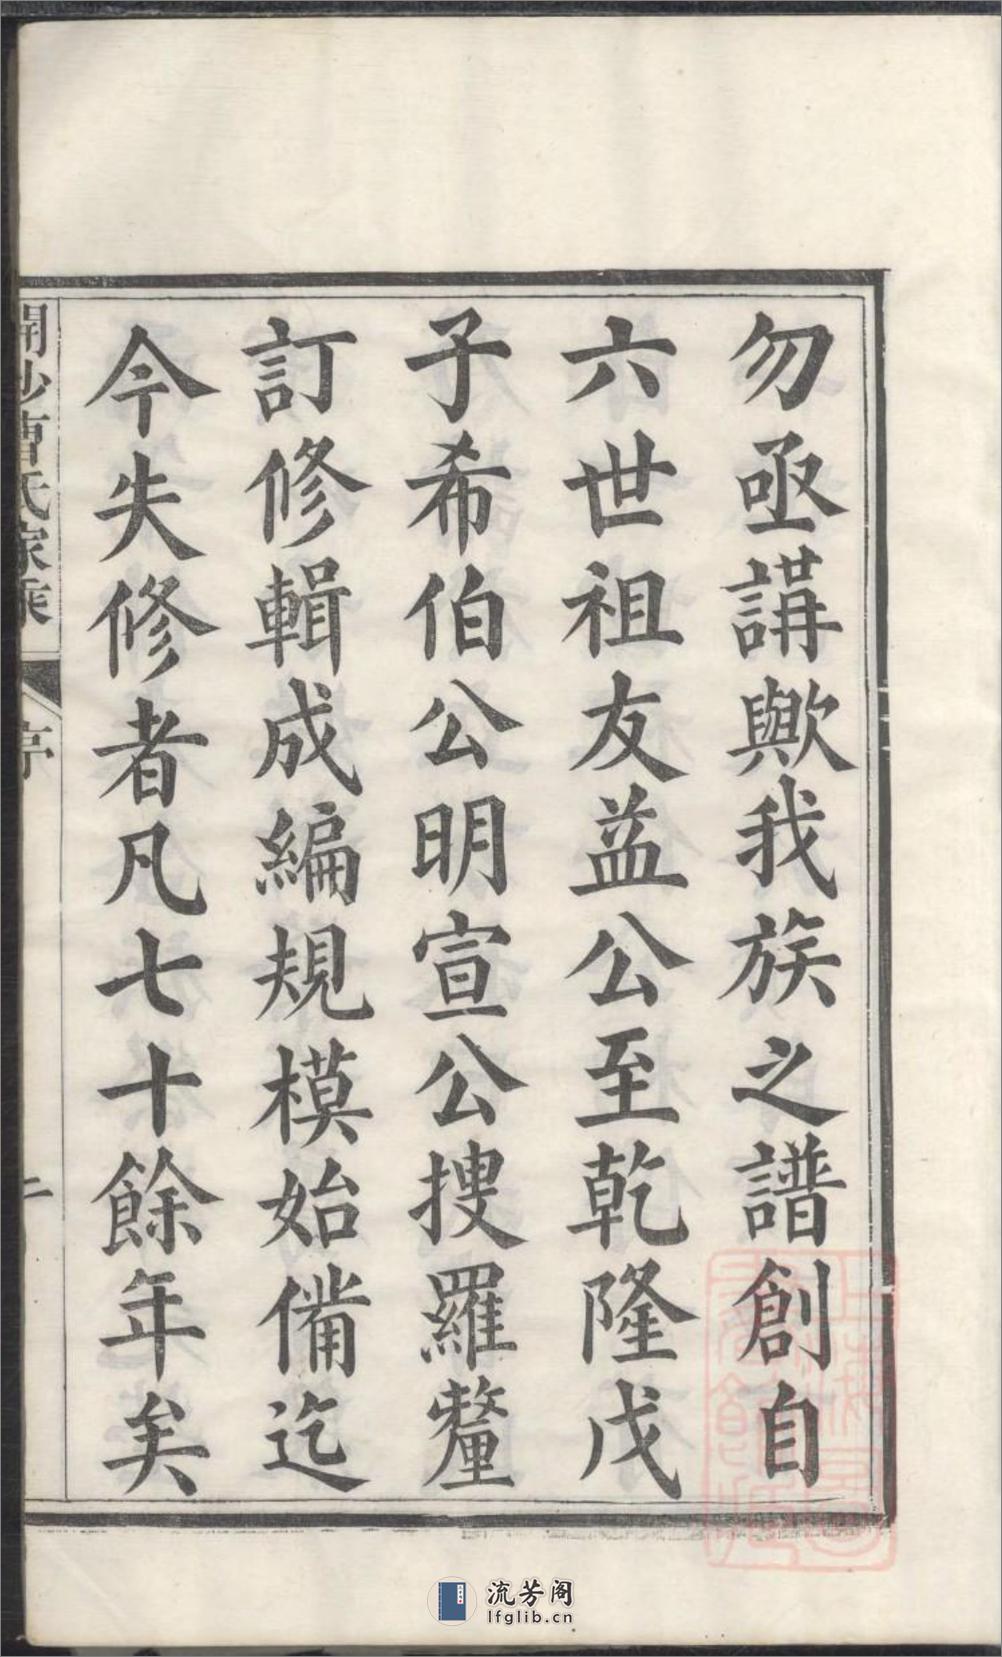 勿亟講歟我族之譜創自
六世祖友益公至乾隆戊
子希伯公明宣公搜羅釐
訂修輯成編規模始備迄
今失修者凡七十餘年矣
開沙曹氏家乘
序
二
流芳阁
lfglib.cn